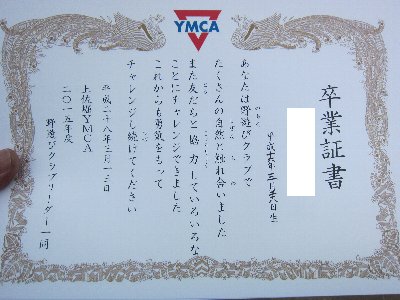 YMCA
卒業証書
平成十六年三月二十八日生
あなたは野遊びクラブで
たくさんの自然と触れ合いました
また友だちと協力していろいろな
ことにチャレンジできました
これからも勇気をもって
チャレンジし続けてください
平成二十八年三月十三日
上依知YMCA
二〇一五年度
野遊びクラブリーダー一同